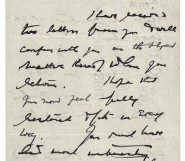 I have received
two letters from you I will
confer with you on the subject
matter thereof when you
return. I hope that
you now feel fully
restored
way. You must have
had